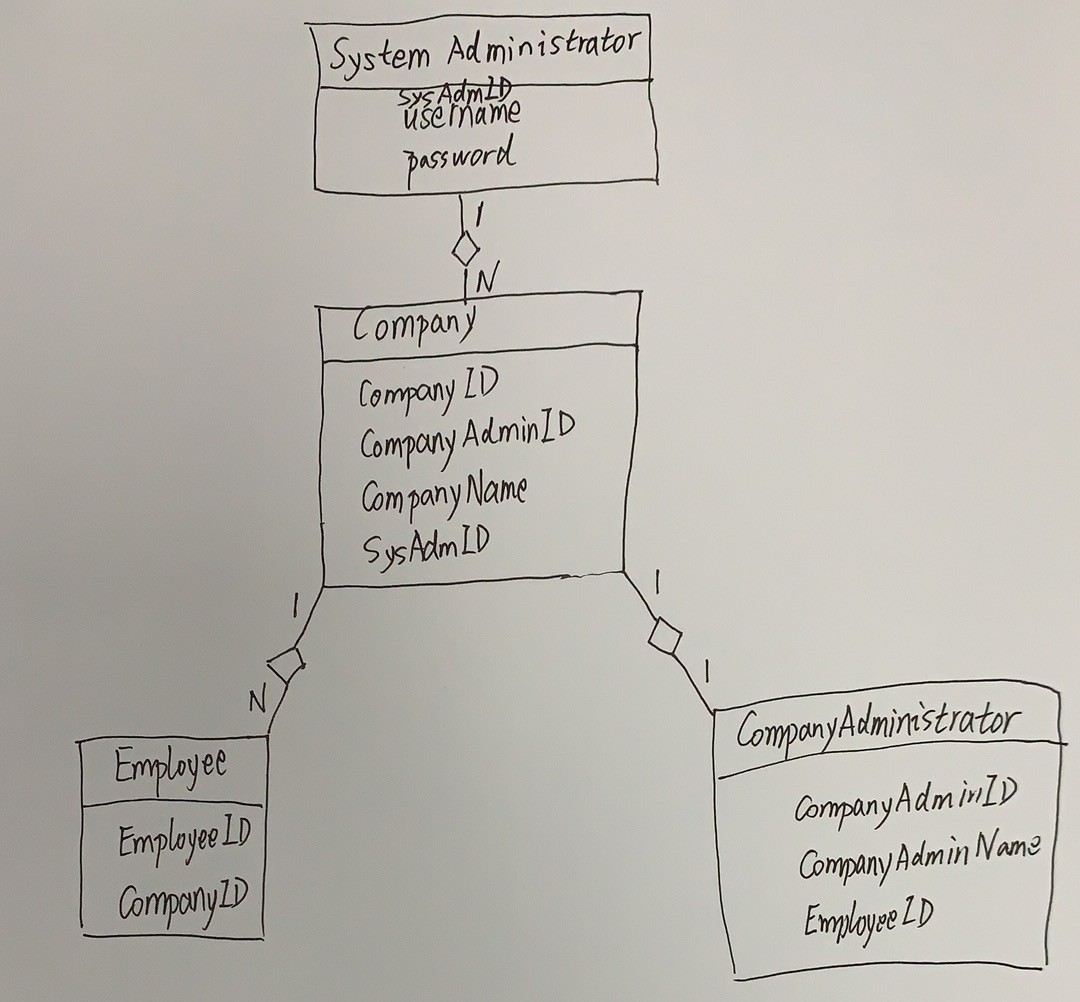 System Administrator
sysAdmID
username
password
1
N
Company
CompanyID
CompanyAdminID
CompanyName
SysAdmID
1
N
1
1
Employee
EmployeeID
CompanyID
CompanyAdministrator
CompanyAdminID
CompanyAdminName
EmployeeID